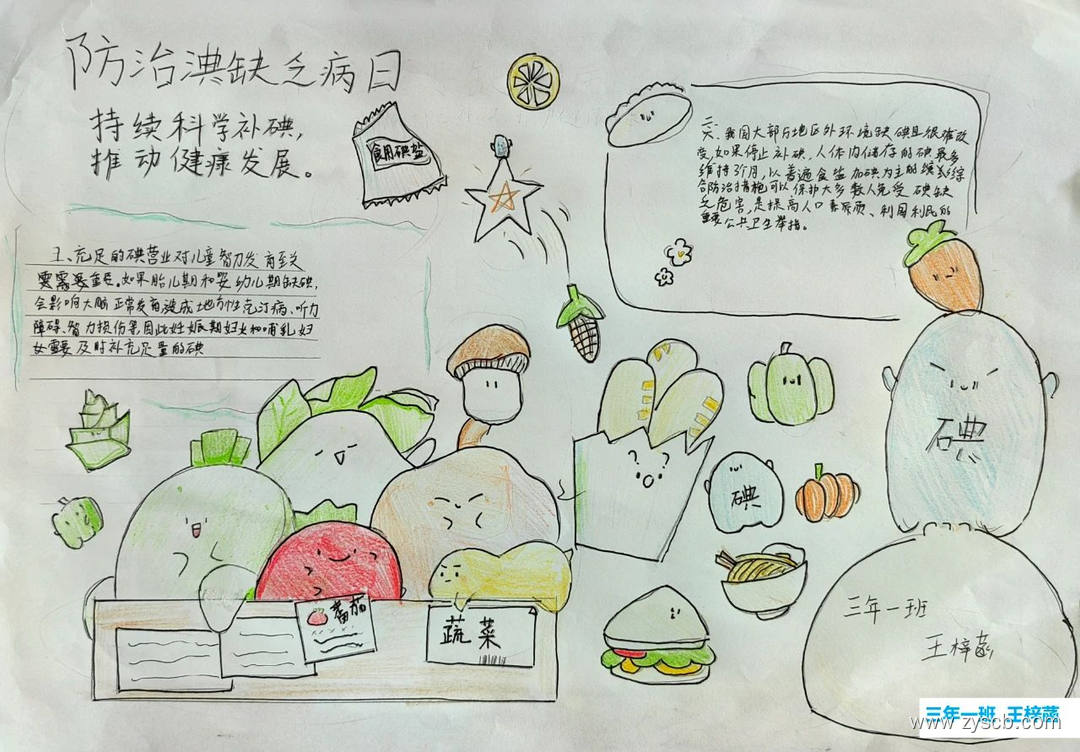 防治碘缺乏病日
持续科学补碘,
推动健康发展。
食用碘盐
1、充足的碘营业对儿童智力发育至关
重要。如果胎儿期和婴幼儿期缺碘,
会影响大脑正常发育造成地方性克汀病、听力
障碍、智力损伤等,因此妊娠期妇女和哺乳妇
女需要及时补充足量的碘
二、我国大部方地区外环境缺碘且很难改
变,如果停止补碘,人体内储存的碘最多
维持3个月,以普遍食盐加碘为主的
合防治措施可以保护大多数人免受碘缺
乏危害,是提高人口素质、利国利民的
重要公共卫生举措。
碘
碘
番茄
蔬菜
三年一班
王梓菡
三年一班 王梓菡
www.zyscb.com